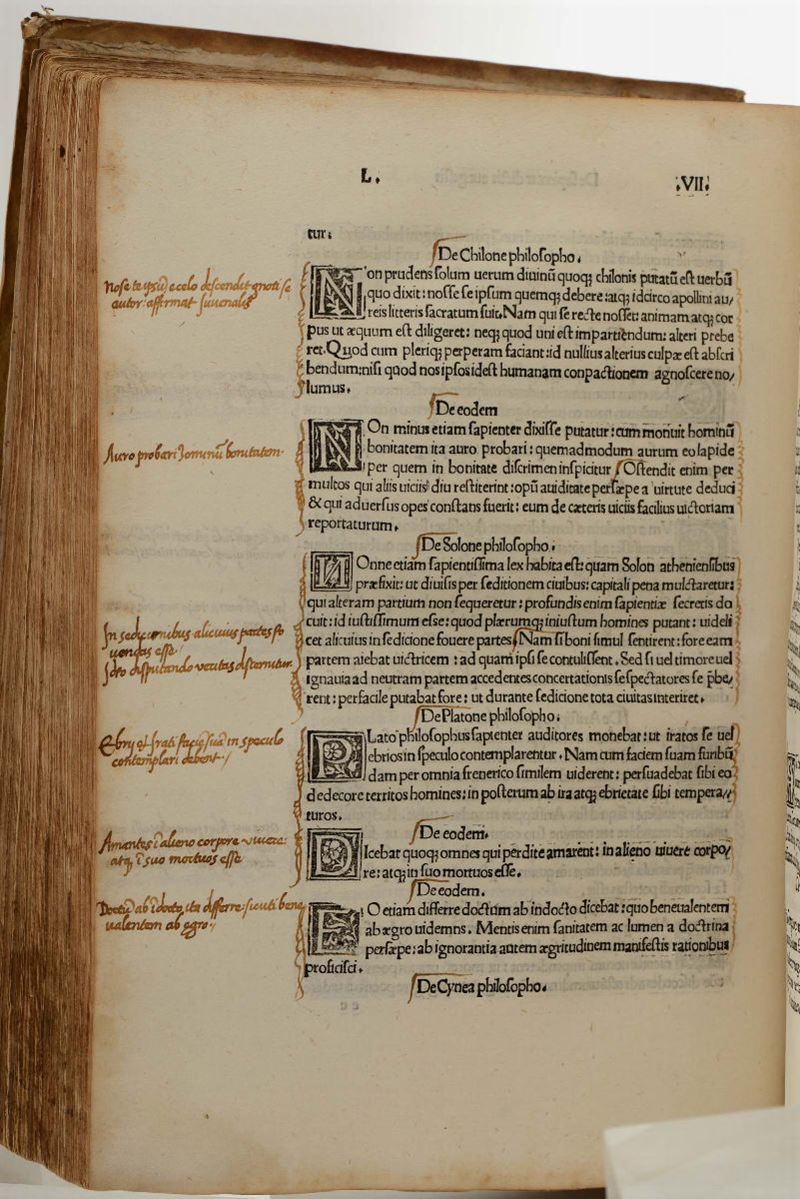 L. .VII.
tur:
De Chilone philoſopho.
Non prudens ſolum uerum diuinũ quoq; chilonis putatũ eſt uerbũ
quo dixit: noſſe ſe ipſum quemq; debere: atq; idcirco apollini au/
reis litteris ſacratum fuit. Nam qui ſe recte noſſet: animam atq; cor
pus ut æquum eſt diligeret: neq; quod uni eſt impartiendum: alteri prebe
ret. Quod cum pleriq; perperam faciant: id nullius alterius culpæ eſt abſcri
bendum: niſi quod nos ipſos ideſt humanam conpactionem agnoſcere no/
lumus.
De eodem
NOn minus etiam ſapienter dixiſſe putatur: cum monuit hominũ
bonitatem ita auro probari: quemadmodum aurum eo lapide
per quem in bonitate diſcrimen inſpicitur. Oſtendit enim per
multos qui aliis uiciis diu reſtiterint: opũ auiditate perſæpe a uirtute deduci
& qui aduerſus opes conſtans fuerit: eum de cæteris uiciis facilius uictoriam
reportaturum.
De Solone philoſopho.
NOnne etiam ſapientiſſima lex habita eſt: quam Solon athenienſibus
præfixit: ut diuiſis per ſeditionem ciuibus: capitali pena mulctaretur:
qui alteram partium non ſequeretur: profundis enim ſapientiæ ſecretis do
cuit: id iuſtiſſimum eſse: quod plærumq; iniuſtum homines putant: uideli
cet alicuius in ſedicione fouere partes. Nam ſi boni ſimul ſentirent: fore eam
partem aiebat uictricem: ad quam ipſi ſe contuliſſent. Sed ſi uel timore uel
ignauia ad neutram partem accedentes concertationis ſeſpectatores ſe p̃be/
rent: perfacile putabat fore: ut durante ſedicione tota ciuitas interiret.
De Platone philoſopho.
PLato philoſophus ſapienter auditores monebat: ut iratos ſe uel
ebrios in ſpeculo contemplarentur. Nam cum faciem ſuam furibũ
dam per omnia frenetico ſimilem uiderent: perſuadebat ſibi eo
dedecore territos homines: in poſterum ab ira atq; ebrietate ſibi tempera/
turos.
De eodem.
DIcebat quoq; omnes qui perdite amarent: in alieno uiuere corpo/
re: atq; in ſuo mortuos eſſe.
De eodem.
EO etiam differre doctum ab indocto dicebat: quo beneualentem
ab ægro uidemus. Mentis enim ſanitatem ac lumen a doctrina
perſæpe: ab ignorantia autem ægritudinem manifeſtis rationibus
proficiſci.
De Cynea philoſopho.
Noſe te ipsũ e celo deſcendit gnoti ſe
autor: affirmat Juuenalis
Auro probari hominũ bonitatem
In sedicionibus alicuius partes fo
uendas eſſe
Ebrij et Irati faciẽ suã in speculo
contemplari debent
Amantes ĩ alieno corpore viuere:
atq; ĩ suo mortuos eſſe
Doctũ ab ĩdocto ita differre: sicuti bene
ualentem ab egro